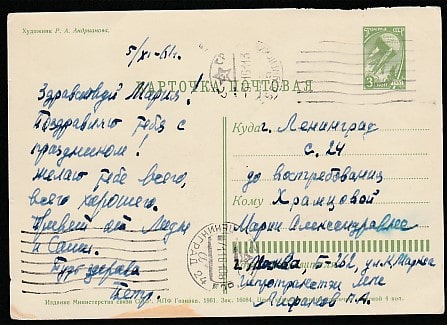 Художник Р. А. Андрианова.
5/XI-61г.
КАРТОЧКА ПОЧТОВАЯ
ПОЧТА СССР
3
Здравствуй Мария!
Поздравляю тебя с
праздником!
Желаю тебе всего,
всего хорошего.
Привет от Лиды
и Саши.
Будь здорова
Петр.
Куда г. Ленинград
с. 24
до востребования
Кому Храмцовой
Марии Александровне
г. Москва Б-262, ул. К. Маркса
П. А.
ЛЕНИНГРАД
Издание Министерства связи СССР. МПФ Гознака. 1961. Зак. 16084. Цена
4 коп.